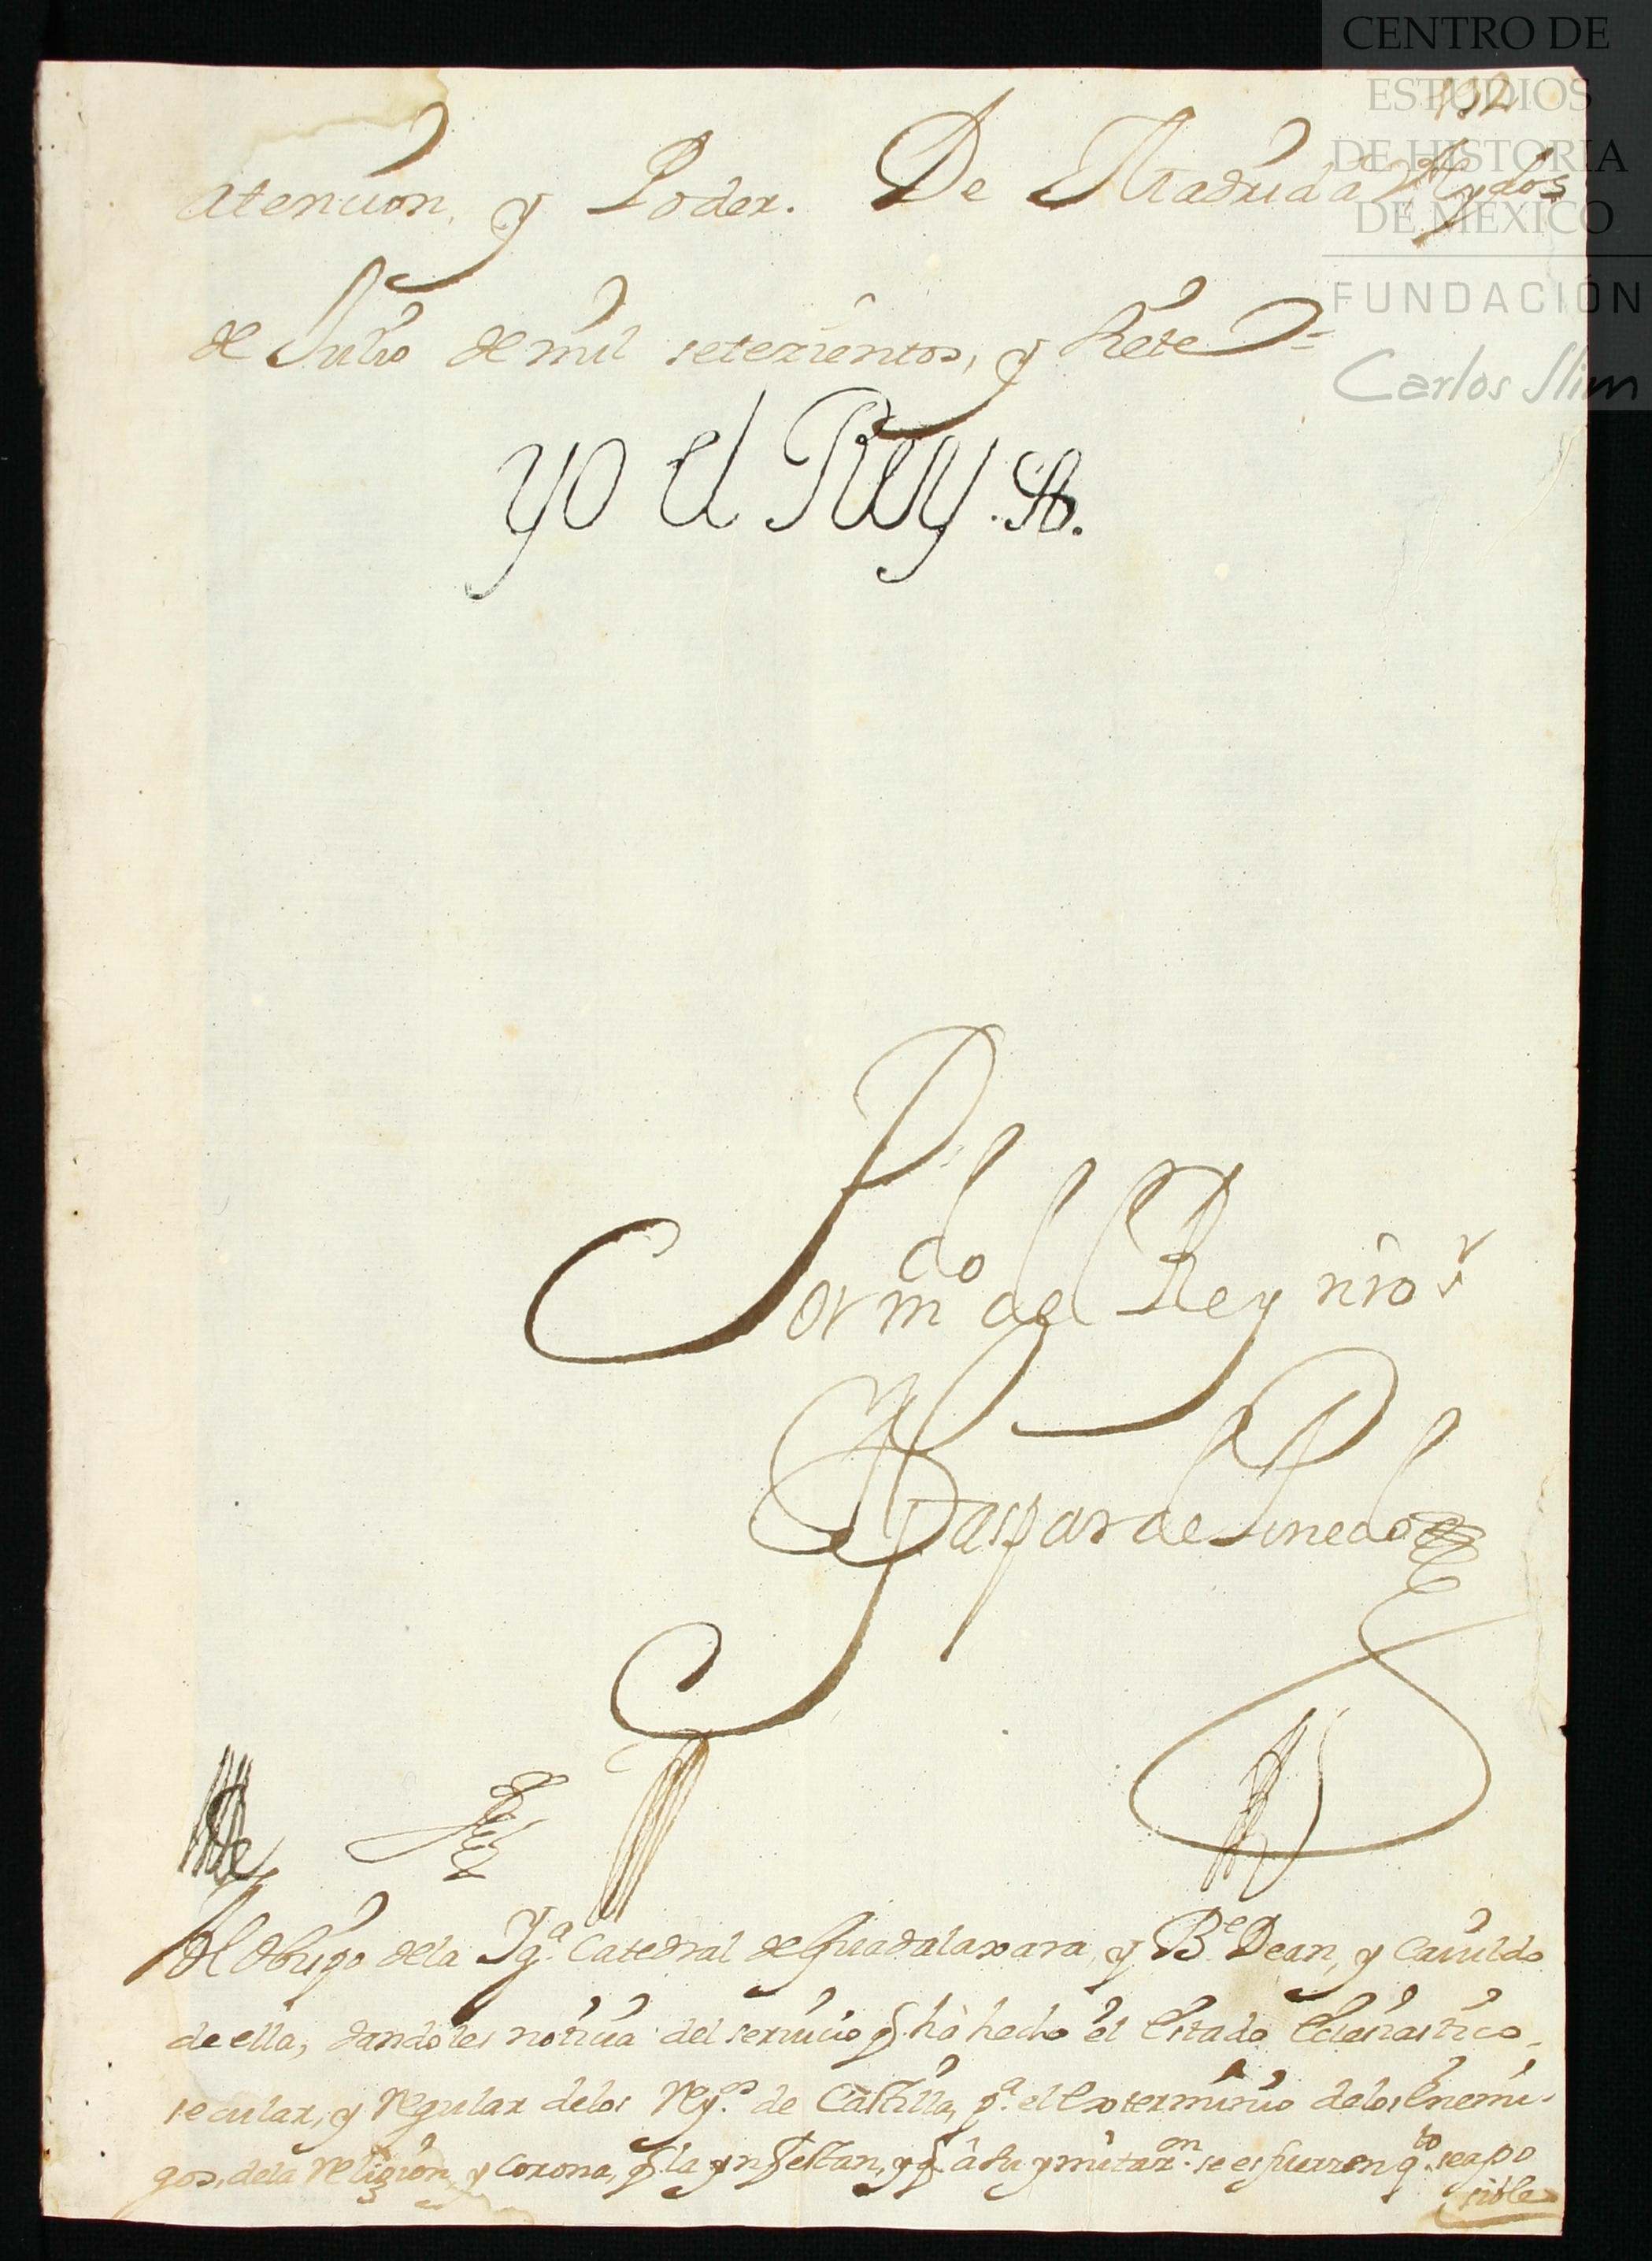 CENTRO DE
ESTUDIOS
DE HISTORIA
DE MÉXICO
FUNDACIÓN
Carlos Slim
atencion, y Poder. De Madrid à Vtẽ y dos
de Julio de mil setezientos, y siete
Yo el Rey
Por mdo del Rey nro sr
Gaspar de Pinedo
Al Obispo de la Yga. Catedral de Guadalaxara, y Be. Dean, y Cavildo
de ella, dandoles noticia del servicio q̃ hà hecho el Estado Eclesiastico
secular, y regular delos Reyos. de Castilla, pa. el Exterminio delos Enemi-
gos, dela religion, y Corona, q̃ la ynfestan, y q̃ à su ymitazon. se esfuerzen qto. sea po
sible